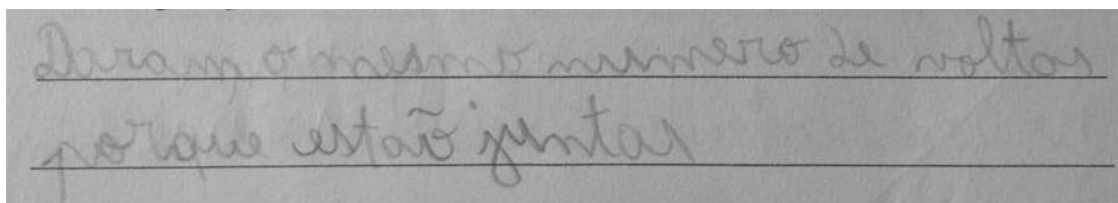 Daram o mesmo numero de voltas
porque estão juntas